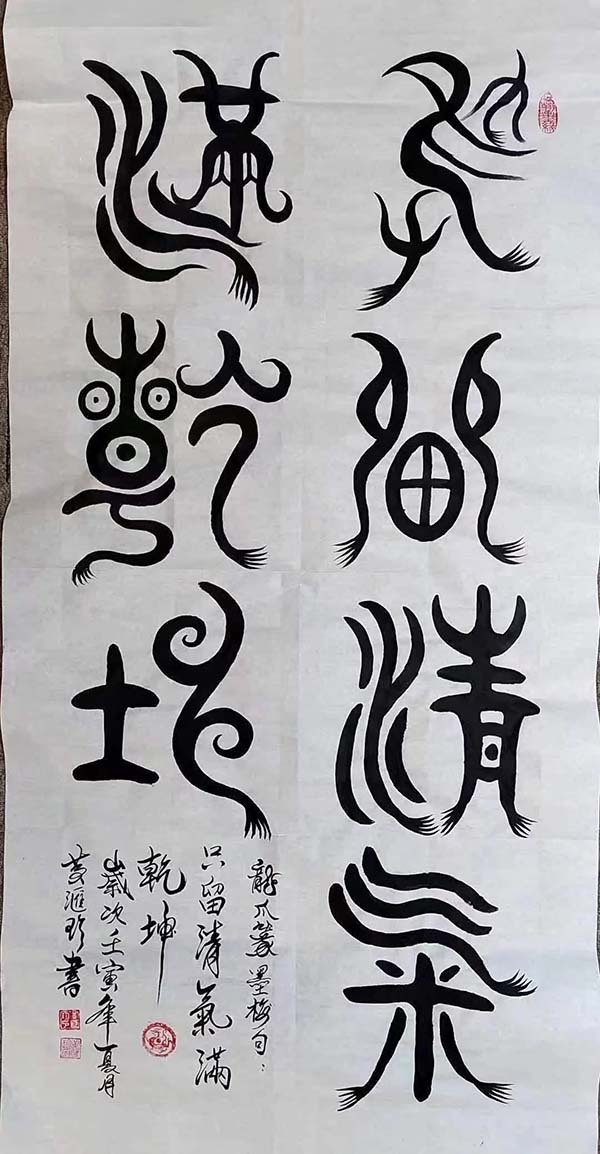 只留清氣
滿乾坤
龍爪篆墨梅句：
只留清氣滿
乾坤
歲次壬寅年夏月
書